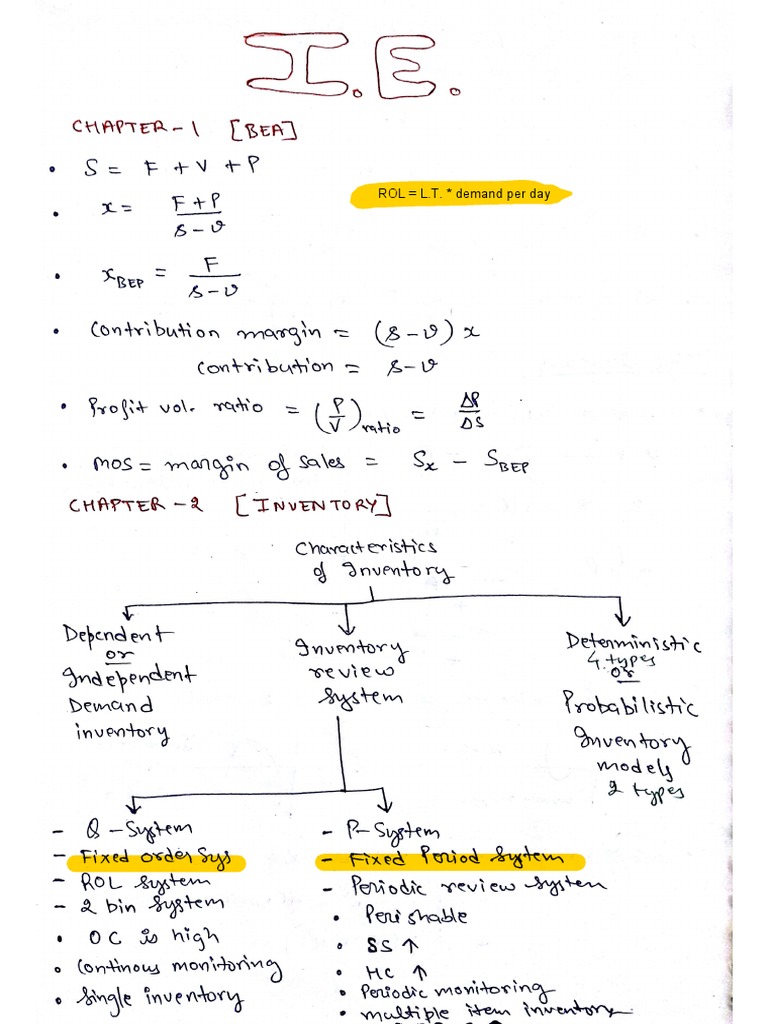 I.E.
CHAPTER-1 [BEA]
• S = F + V + P
ROL = L.T. * demand per day
• x = (F+P)/(s-v)
• xBEP = F/(s-v)
• Contribution margin = (s-v) x
Contribution = s-v
• Profit vol. ratio = (P/V)ratio = ΔP/ΔS
• MOS = margin of sales = Sx - SBEP
CHAPTER-2 [INVENTORY]
Characteristics
of Inventory
Dependent
or
Independent
Demand
inventory
Inventory
review
system
Deterministic
4 types
or
Probabilistic
Inventory
models
2 types
- Q-System
- Fixed order sys
- ROL system
- 2 bin system
• OC is high
• Continous monitoring
• Single inventory
- P-System
- Fixed Period System
- Periodic review system
• Perishable
• SS ↑
• HC ↑
• Periodic monitoring
• multiple item inventory